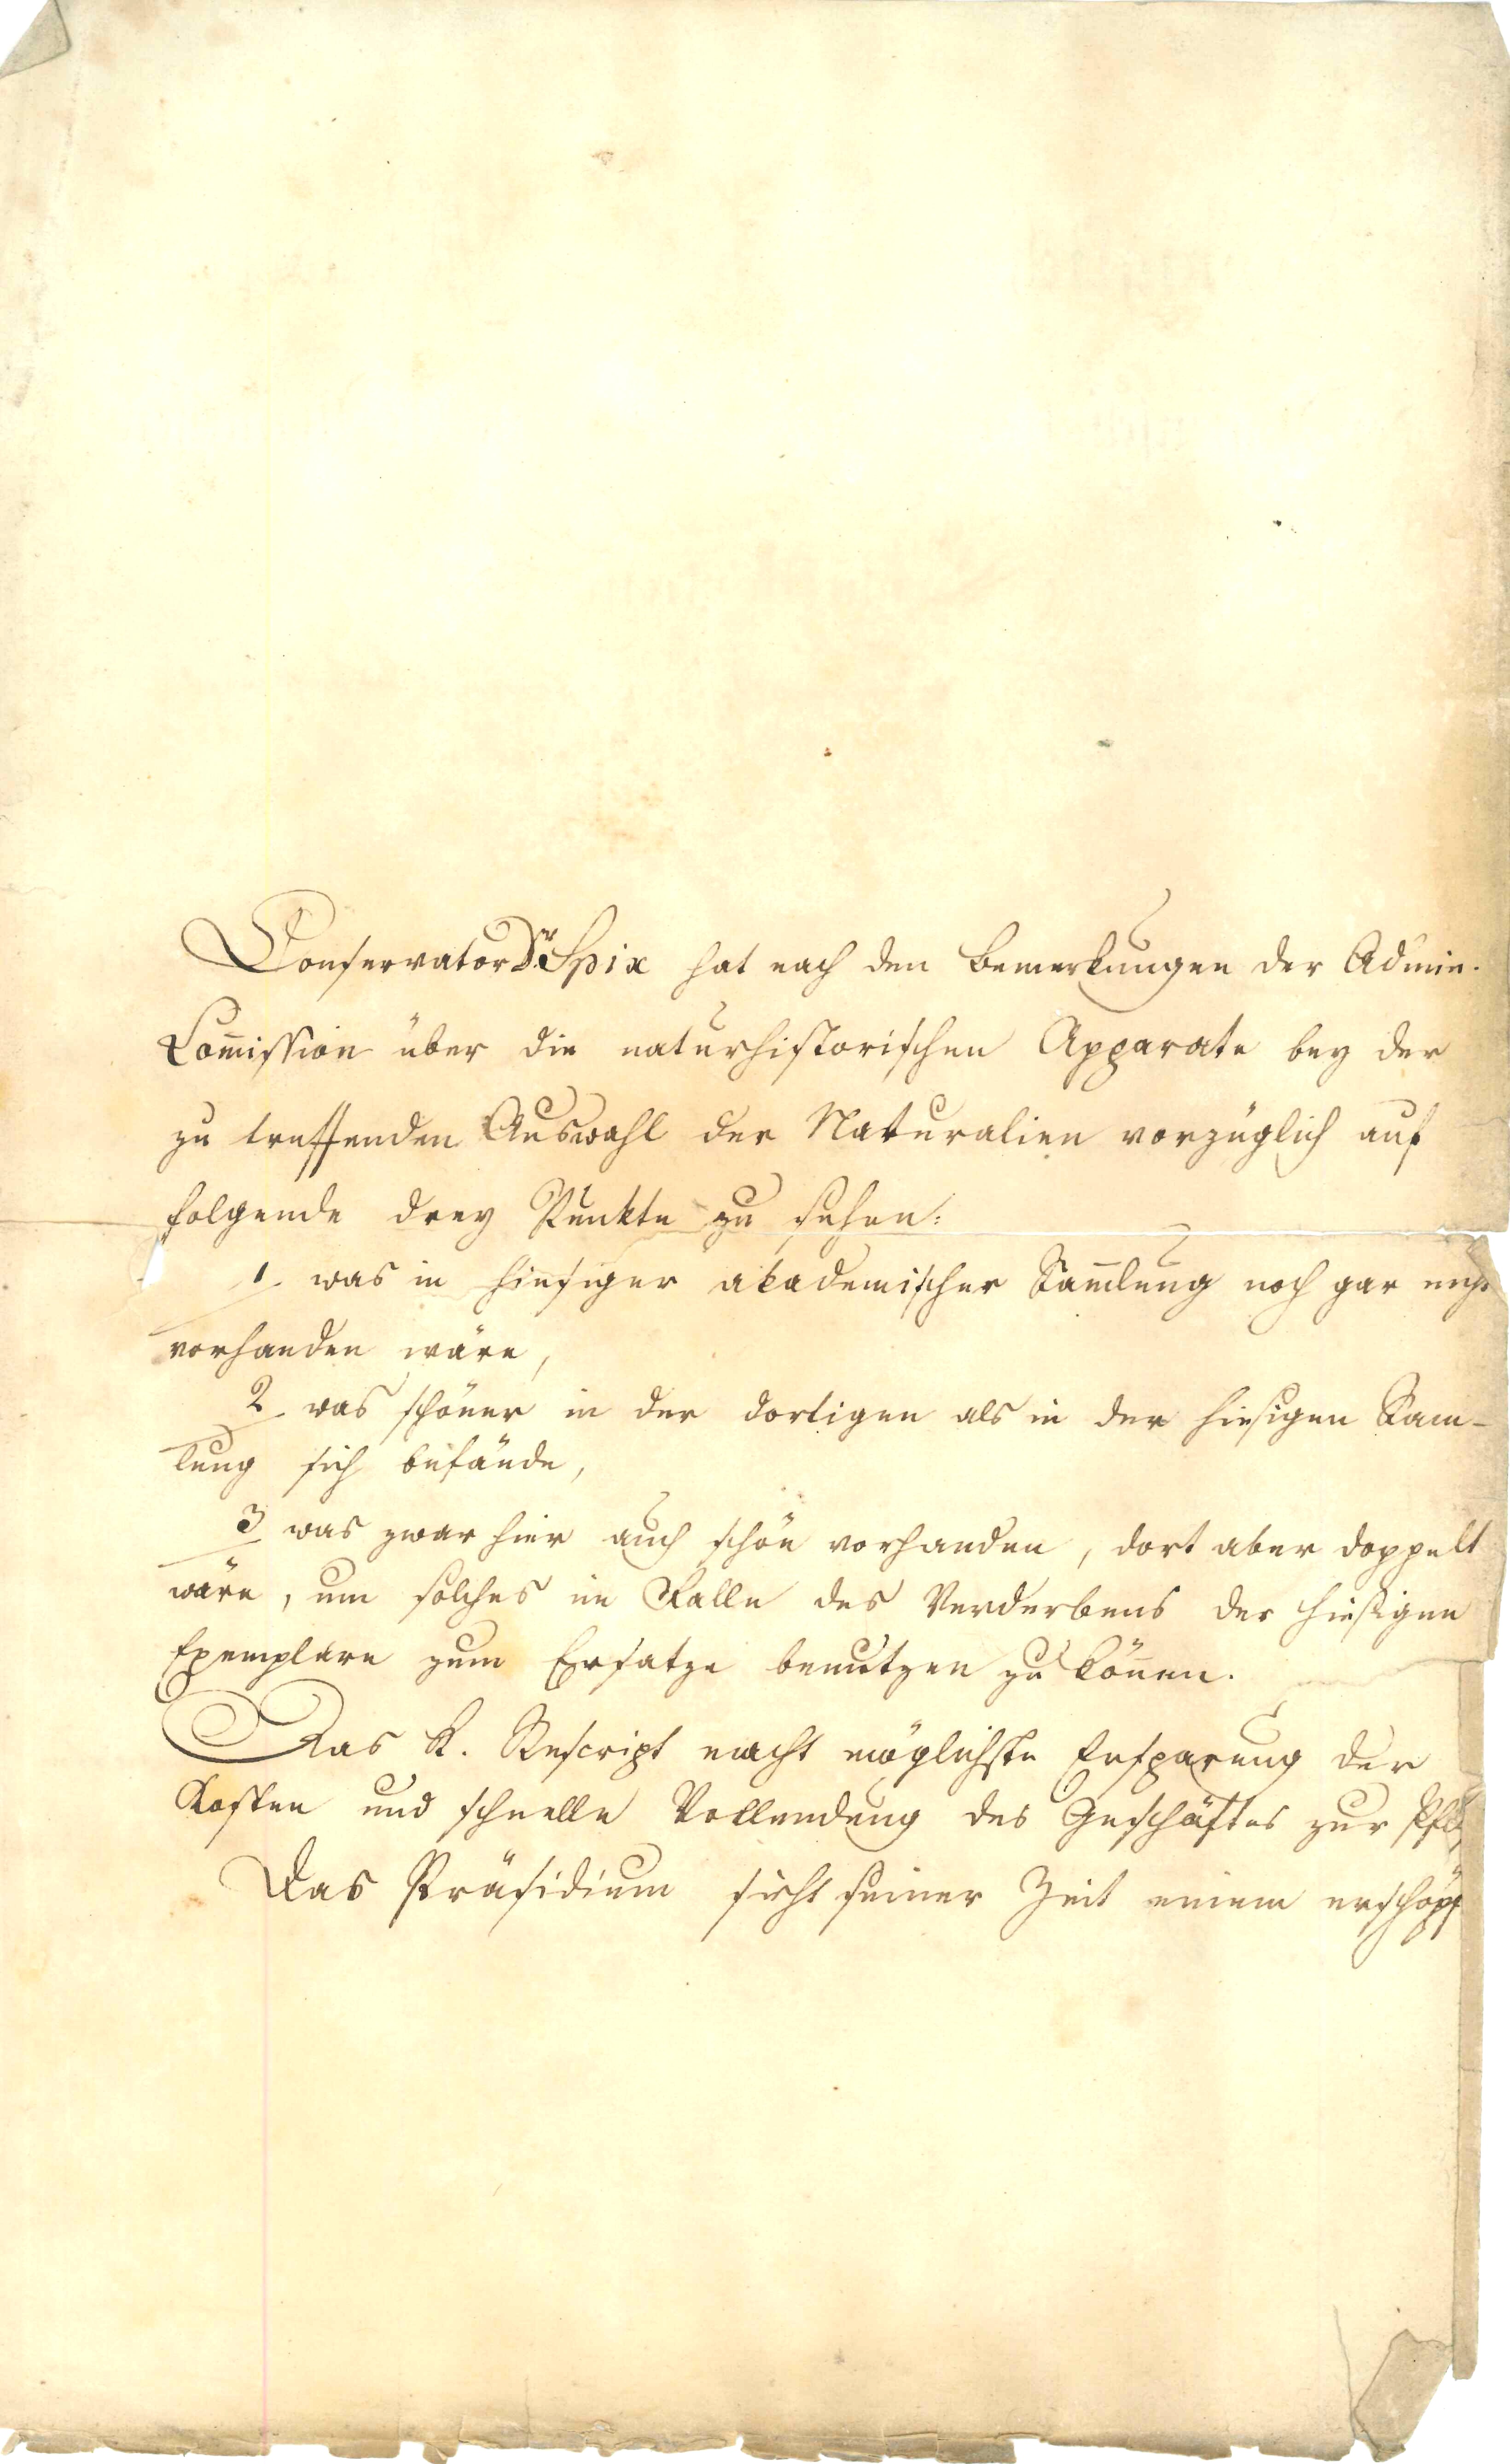 Conservator Dr. Spix hat nach den Bemerkungen der Admin.
Com̄ission über die naturhistorischen Apparate bey der
zu treffenden Auswahl der Naturalien vorzüglich auf
folgende drey Punkte zu sehen:
1. was in hiesiger akademischer Sam̄lung noch gar nicht
vorhanden wäre,
2. was schöner in der dortigen als in der hiesigen Sam-
lung sich befände,
3. was zwar hier auch schön vorhanden, dort aber doppelt
wäre, um solches im Falle des Verderbens der hiesigen
Exemplare zum Ersatze benutzen zu kön̄en.
Das K. Rescript macht möglichste Ersparung der
Kosten und schnelle Vollendung des Geschäftes zur
Das Präsidium sieht seiner Zeit einem erschöpf